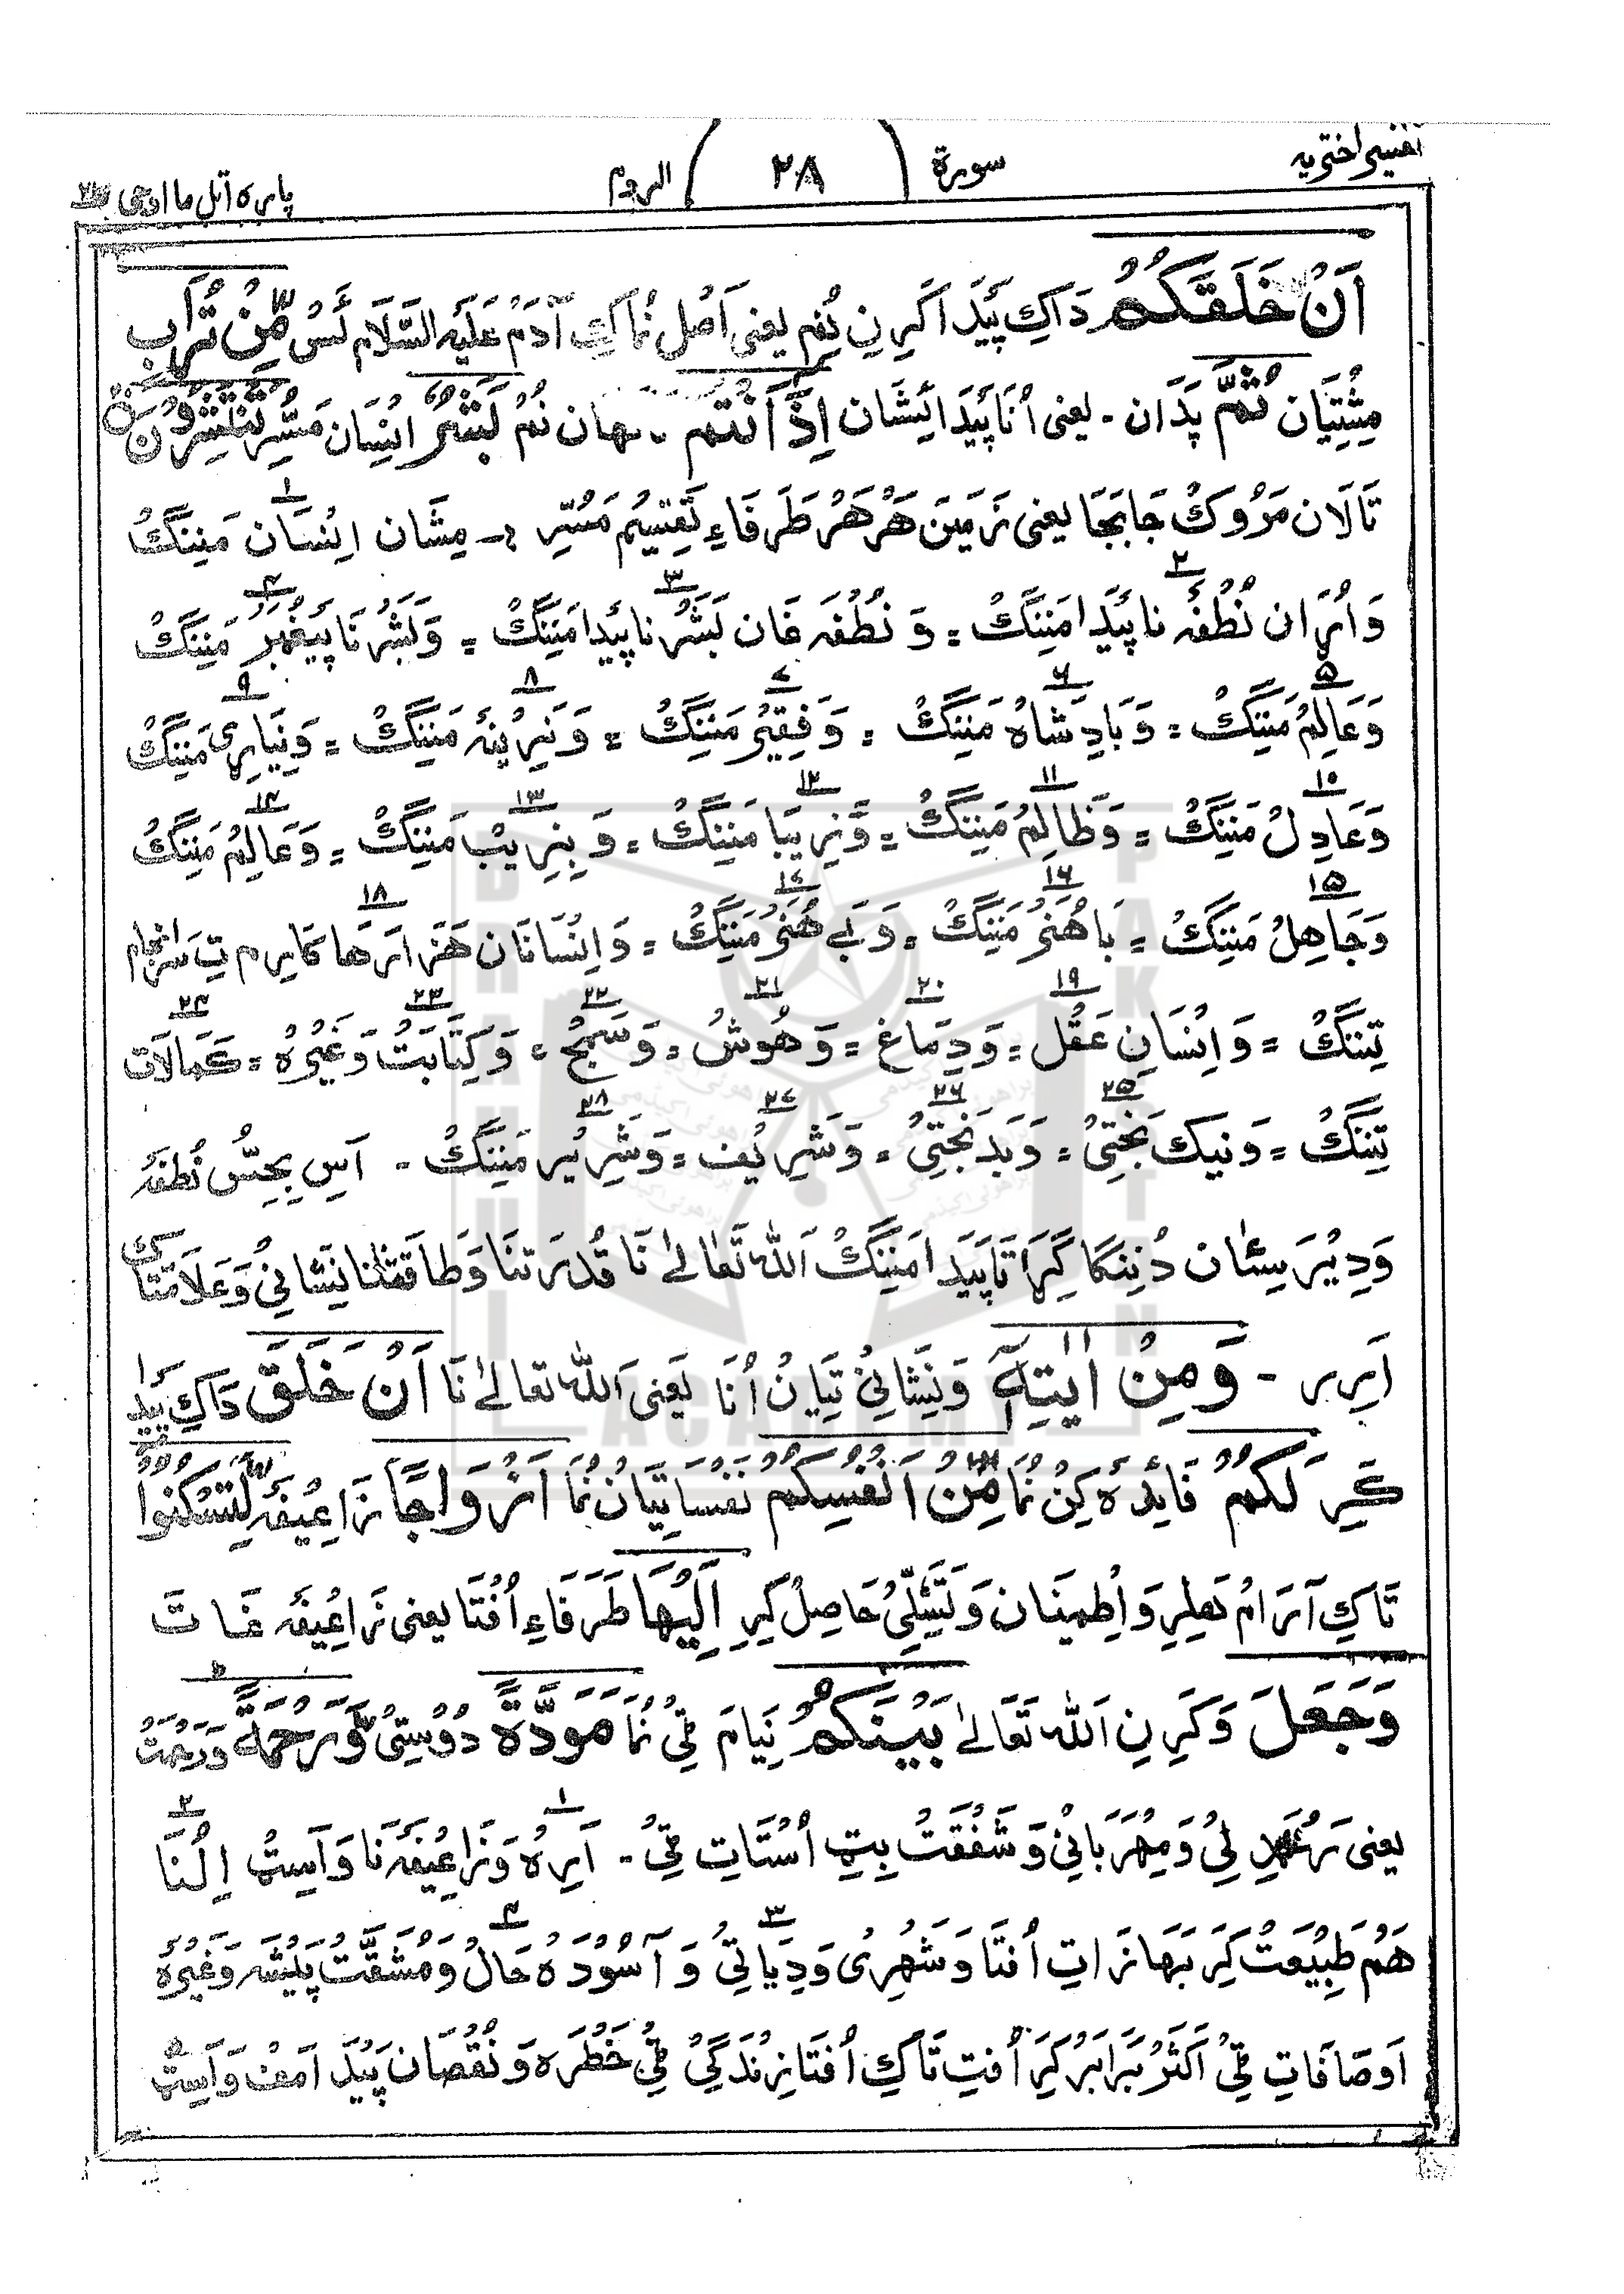 تفسیر اختریه
سورة ( ٢٨ ) الروم
پاره اتل ما اوحی
اَنْ خَلَقَكُمْ دَاکِ پَیْدَا کَرِنِ نُم یعنی اَصْل نُمَا کِ آدَمْ عَلَیْهِ السَّلَام لَسُ مِّنْ تُرَابٍ
مِشْتِیَان ثُمَّ پَدَان ۔ یعنی اُنَا پَیْدَائِشَان اِذَا اَنْتُمْ ۔ هان نُمْ بَشَرٌ انْسَان مَسُّرِ تَنْتَشِرُوْنَ
تَالَان مَرُوکُ جَابَجَا یعنی زَمِیْن هَرْهَرْ طَرَفَاءِ تَقْسِیْم مَسُّرِ ۔ مِشَان اِنْسَان مَنِنْگُ
وَ اُرَان نُطْفَه نا پَیْدَا مَنِنْگُ = وَ نُطْفَه غَان بَشَرْ نا پَیْدا مَنِنْگُ = وَ بَشَرْ نَا پَیْغَمْبَر مَنِنْگُ
وَ عَالِمْ مَنِنْگُ = وَ بَادِشَاهْ مَنِنْگُ = وَ فَقِیْر مَنِنْگُ = وَ نَرِیْنَه مَنِنْگُ = وَ نِیَارِی مَنِنْگُ
وَ عَادِلْ مَنِنْگُ = وَ ظَالِمْ مَنِنْگُ = وَ زِیْبَا مَنِنْگُ = وَ بِزِیْبْ مَنِنْگُ = وَ عَالِمْ مَنِنْگُ
وَ جَاهِلْ مَنِنْگُ = بَا هُنَرْ مَنِنْگُ = وَ بَے هُنَرْ مَنِنْگُ = وَ اِنْسَانَان هَزَارْهَا کَارِم تِ سَرَانْجَام
تِنِنْگُ = وَ اِنْسَانِ عَقْل = وَ دِمَاغ = وَ هُوْشُ = وَ سَمَجْ = وَ کِتَابَتْ وَ غَیْرُهُ = کَمَالَات
تِنِنْگُ = وَ نیک بَخْتِیُ = وَ بَدْ بَخْتِیُ = وَ شَرِیْف = وَ شَرِیْر مَنِنْگُ ۔ اَسِ بِحِسُّ نُطْفَه
وَ دِیْر سِیْان دُنِنْگَا گِرَا تَا پَیْدَا مَنِنْگُ اَللّٰه تَعَالٰے نَا قُدْرَتْنَا وَ طَاقَتْنَا نِشَانِیُ وَ عَلَامَتْا
اَرِر ۔ وَ مِنْ اٰیٰتِهٖۤ وَ نِشَانِیْ تِیَان اُنَا یَعنی اَللّٰه تعالٰے نَا اَنْ خَلَقَ دَاکِ پَیْدا
کَرِ لَكُمْ فَائِدَه کِنْ نُمَا مِّنْ اَنْفُسِكُمْ نَفْسَاتِیَان نُمَا اَزْوَاجًا زَاعِیْفَه لِّتَسْكُنُوْا
تَاکِ آرَامْ هَلِرِ وَ اِطْمِنَان وَ تَسَلِّیُ حَاصِلْ کِرِ اِلَیْهَا طَرَفَاءِ اُفْتَا یعنی زَاعِیْفَه غَاتَ
وَ جَعَلَ وَ کَرِنِ اَللّٰه تَعَالٰے بَیْنَكُمْ نِیَامَ ٹِیُ نُمَا مَوَدَّةً دُوْسِتِیُ وَّ رَحْمَةً وَ رَحْمَتُ
یعنی رَحْمدِلِیُ وَ مِهْرَبَانِیُ وَ شَفْقَتُ بِیتِ اُسْتَاتِ ٹِیُ ۔ اَرِهُ وَ زَاعِیْفَه نَا وَ آسِٹ اِلْنَا
هَمْ طَبِیْعَتُ کَرِ بَهازَاتِ اُفتَا وَ شَهْرِیُ وَ دِیَاتِیُ وَ آسُوْدَه حَالُ وَ مُشَقَّتْ پَیْشَه وَغَیْرَهُ
اَوصَافَاتِ ٹِیُ اَکْثَرْ بَرَابَرْ کَرِ اُفتِ تَاکِ اُفتَا زِنْدَگِیُ ٹِیُ خَطْرَه وَ نُقْصَان پَیْدَا مَفْ وَ آسِٹ